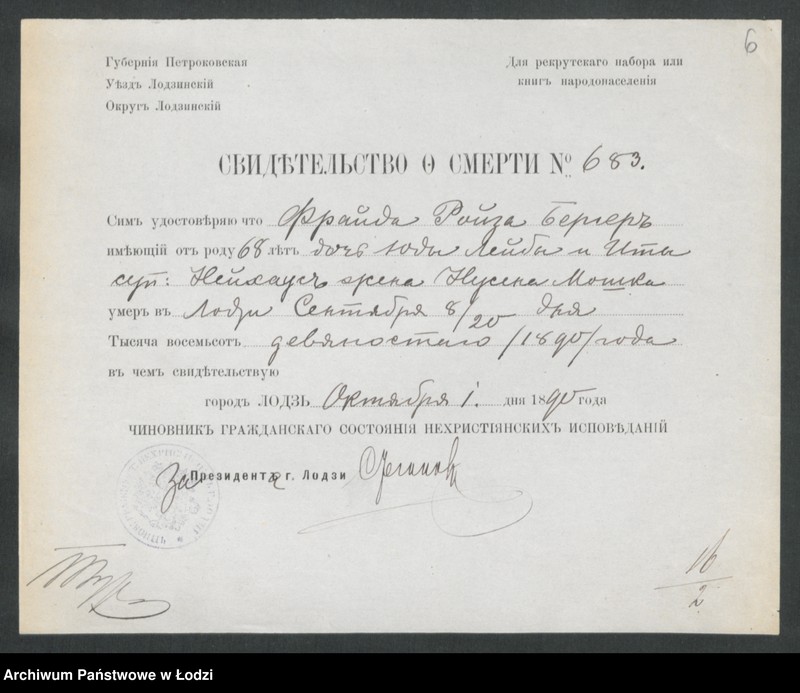 6
Губернія Петроковская
Уѣздъ Лодзинскій
Округъ Лодзинскій
Для рекрутскаго набора или
книгъ народонаселенія
СВИДѢТЕЛЬСТВО О СМЕРТИ № 683.
Симъ удостовѣряю что Фрайда Ройза Бергеръ
имѣющій отъ роду 68 лѣтъ дочь Юды Лейбы и Иты
суп: Нейхаусъ жена Нусена Мошка
умеръ въ Лодзи Сентября 8/20 дня
Тысяча восемьсотъ девяностаго /1890/ года
въ чемъ свидѣтельствую
городъ ЛОДЗЬ Октября 1. дня 1890 года
ЧИНОВНИКЪ ГРАЖДАНСКАГО СОСТОЯНІЯ НЕХРИСТІЯНСКИХЪ ИСПОВѢДАНІЙ
За Президента г. Лодзи
16/2
Archiwum Państwowe w Łodzi